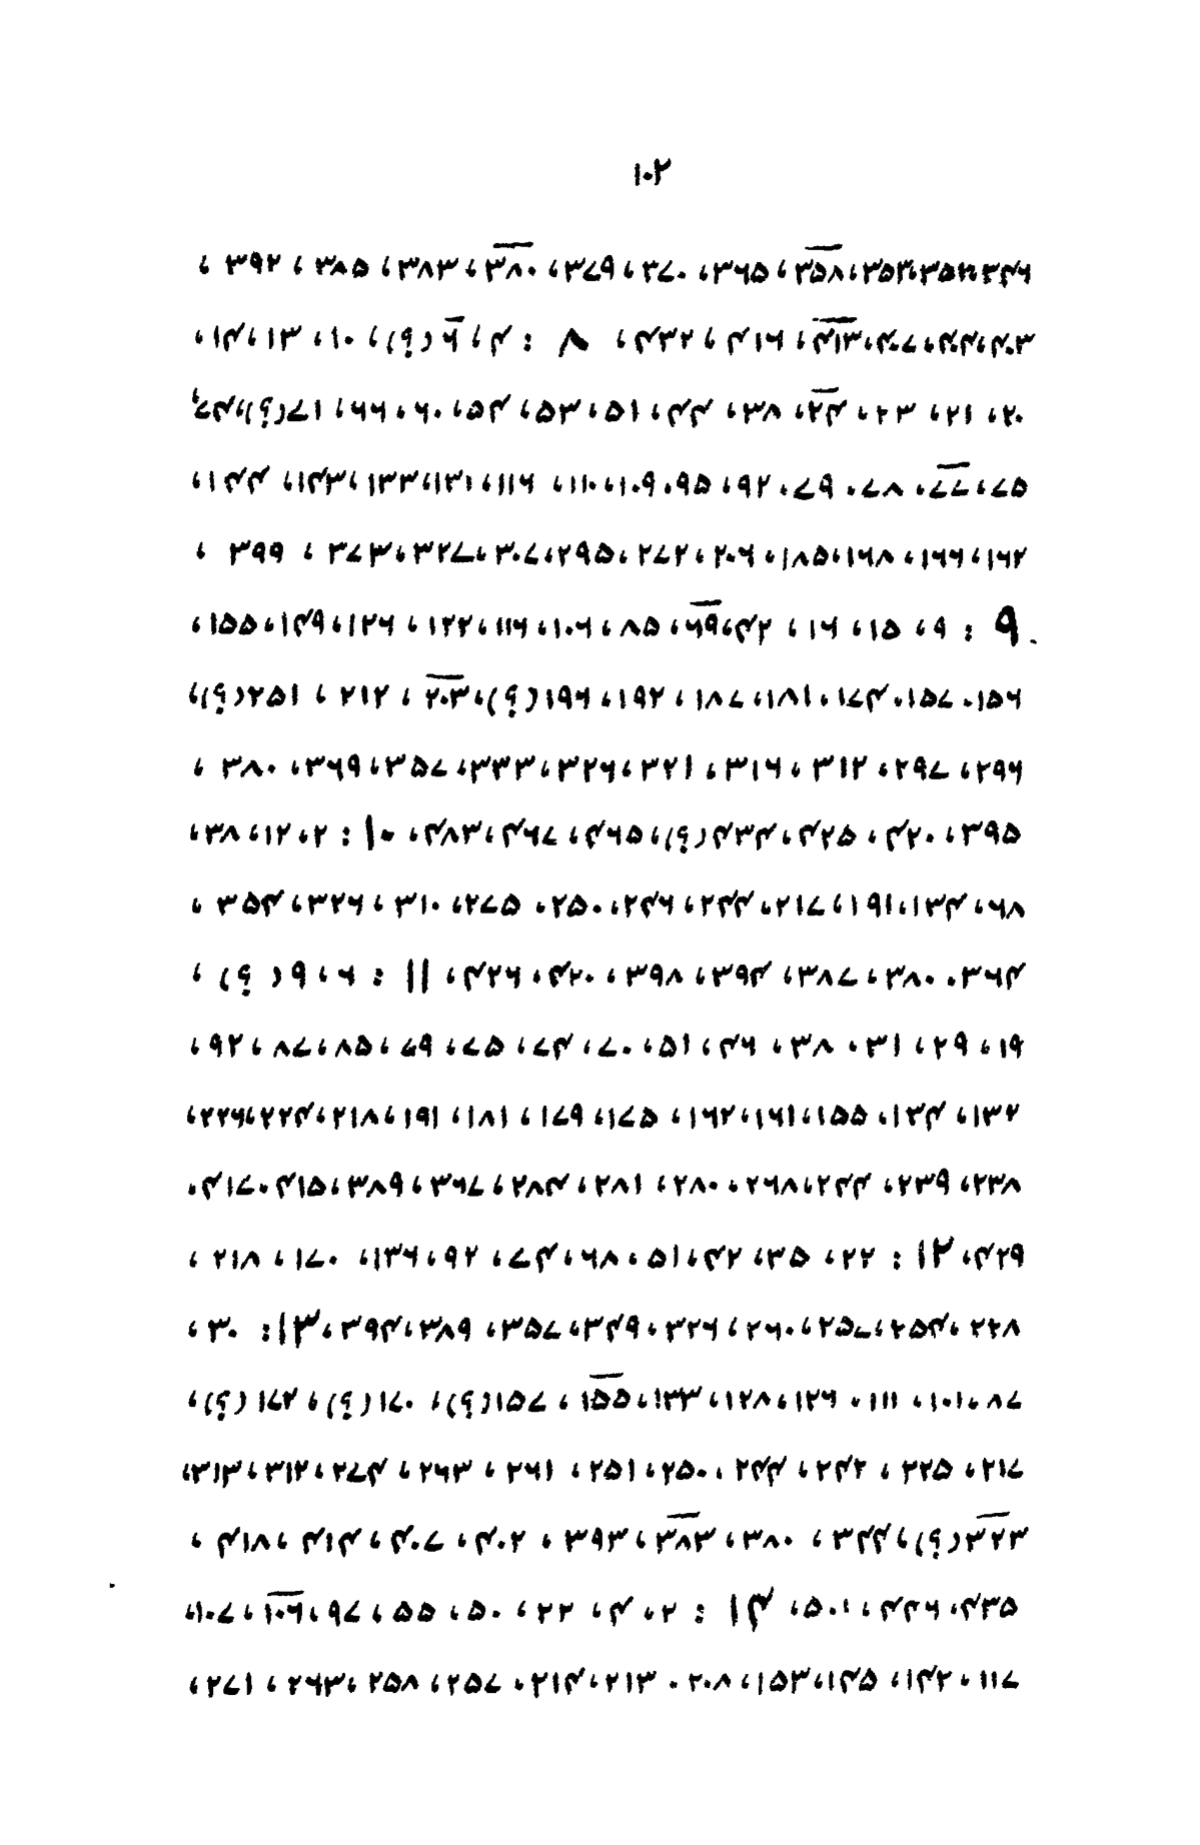 ۱۰۲
۳۴۶، ۳۵۲، ۳۵۳، ۳۵۸، ۳۶۵، ۳۷۰، ۳۷۹، ۳۸۰، ۳۸۳، ۳۸۵، ۳۹۲،
۴۰۳، ۴۰۴، ۴۰۷، ۴۱۳، ۴۱۶، ۴۳۲، ۸ : ۴، ۶ (؟)، ۱۰، ۱۳، ۱۴،
۲۰، ۲۱، ۲۳، ۲۴، ۳۸، ۴۴، ۵۱، ۵۳، ۵۴، ۶۰، ۶۶، ۷۱ (؟)، ۷۴،
۷۵، ۷۷، ۸۷، ۹۷، ۹۲، ۹۵، ۱۰۹، ۱۱۰، ۱۱۶، ۱۳۱، ۱۳۳، ۱۴۳، ۱۴۴،
۱۶۲، ۱۶۶، ۱۶۸، ۱۸۵، ۲۰۶، ۲۷۲، ۲۹۵، ۳۰۷، ۳۲۷، ۳۷۳، ۳۹۹،
۹ : ۹، ۱۵، ۱۶، ۴۲، ۶۹، ۸۵، ۱۰۶، ۱۱۶، ۱۲۲، ۱۲۶، ۱۴۹، ۱۵۵،
۱۵۶، ۱۵۷، ۱۷۴، ۱۸۱، ۱۸۷، ۱۹۲، ۱۹۶ (؟)، ۲۰۳، ۲۱۲، ۲۵۱ (؟)،
۲۹۶، ۲۹۷، ۳۱۲، ۳۱۶، ۳۲۱، ۳۲۶، ۳۳۳، ۳۵۷، ۳۶۹، ۳۸۰،
۳۹۵، ۴۲۰، ۴۲۵، ۴۳۴ (؟)، ۴۶۵، ۴۶۷، ۴۸۳، ۱۰ : ۲، ۱۲، ۳۸،
۶۸، ۱۳۴، ۱۹۱، ۲۱۷، ۲۴۴، ۲۴۶، ۲۵۰، ۲۷۵، ۳۱۰، ۳۲۶، ۳۵۴،
۳۶۴، ۳۸۰، ۳۸۷، ۳۹۴، ۳۹۸، ۴۲۰، ۴۲۶، ۱۱ : ۶، ۹ (؟)،
۱۹، ۲۹، ۳۱، ۳۸، ۴۶، ۵۱، ۷۰، ۷۴، ۷۵، ۷۹، ۸۵، ۸۷، ۹۲،
۱۳۲، ۱۳۴، ۱۵۵، ۱۶۱، ۱۶۲، ۱۷۵، ۱۷۹، ۱۸۱، ۱۹۱، ۲۱۸، ۲۲۴، ۲۲۶،
۲۳۸، ۲۳۹، ۲۴۴، ۲۶۸، ۲۸۰، ۲۸۱، ۲۸۴، ۳۶۷، ۳۸۹، ۴۱۵، ۴۱۷،
۴۲۹، ۱۲ : ۲۲، ۳۵، ۴۲، ۵۱، ۶۸، ۷۴، ۹۲، ۱۳۶، ۱۷۰، ۲۱۸،
۲۲۸، ۲۵۴، ۲۵۷، ۲۶۰، ۳۲۶، ۳۴۹، ۳۵۷، ۳۸۹، ۳۹۴، ۱۳ : ۳۰،
۸۷، ۱۰۱، ۱۱۱، ۱۲۶، ۱۲۸، ۱۳۳، ۱۵۵، ۱۵۷ (؟)، ۱۷۰ (؟)، ۱۷۲ (؟)،
۲۱۷، ۲۲۵، ۲۴۲، ۲۴۴، ۲۵۰، ۲۵۱، ۲۶۱، ۲۶۳، ۲۷۴، ۳۱۲، ۳۱۳،
۳۲۳ (؟)، ۳۴۴، ۳۸۰، ۳۸۳، ۳۹۳، ۴۰۲، ۴۰۷، ۴۱۴، ۴۱۸،
۴۳۵، ۴۴۶، ۵۰۱، ۱۴ : ۲، ۴، ۲۲، ۵۰، ۵۵، ۹۷، ۱۰۶، ۱۰۷،
۱۱۷، ۱۴۲، ۱۴۵، ۱۵۳، ۲۰۸، ۲۱۳، ۲۱۴، ۲۵۷، ۲۵۸، ۲۶۳، ۲۷۱،